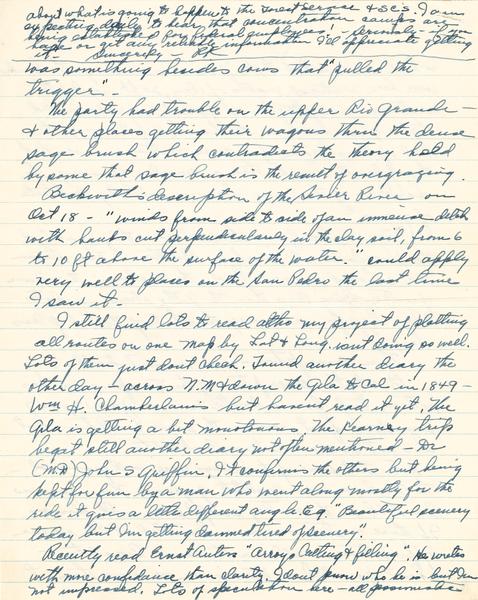 about what is going to happen to the Forest Service & SCS. I am
expecting daily to hear that concentration camps are
being established for federal employees. Seriously - if you
hope or get any reliable information I'd appreciate getting
it - Sincerely -
was something besides cows that "pulled the
trigger" -
The party had trouble on the upper Rio Grande -
& other places getting their wagons thru the dense
sage brush which contradicts the theory held
by some that sage brush is the result of overgrazing.
Beckwith's description of the Sevier River on
Oct 18 - "winds from side to side of an immense ditch
with banks cut perpendicularly in the clay soil, from 6
to 10 ft above the surface of the water." could apply
very well to places on the San Pedro the last time
I saw it -
I still find lots to read altho my project of plotting
all routes on one map by Lat & Long. isn't doing so well.
Lots of them just don't check. Found another diary the
other day - across N.M & down the Gila to Cal in 1849 -
Wm H. Chamberlain's but haven't read it yet. The
Gila is getting a bit monotonous. The Kearney trip
begat still another diary not often mentioned - Dr
(MD) John S Griffin. It confirms the others but being
kept for fun by a man who went along mostly for the
ride it gives a little different angle. Eg. "Beautiful scenery
today but I'm getting damned tired of scenery".
Recently read Ernst Antevs "Arroyo Cutting & filling". He writes
with more confidence than clarity. I don't know who he is but I'm
not impressed. Lots of speculation here - all possimistic